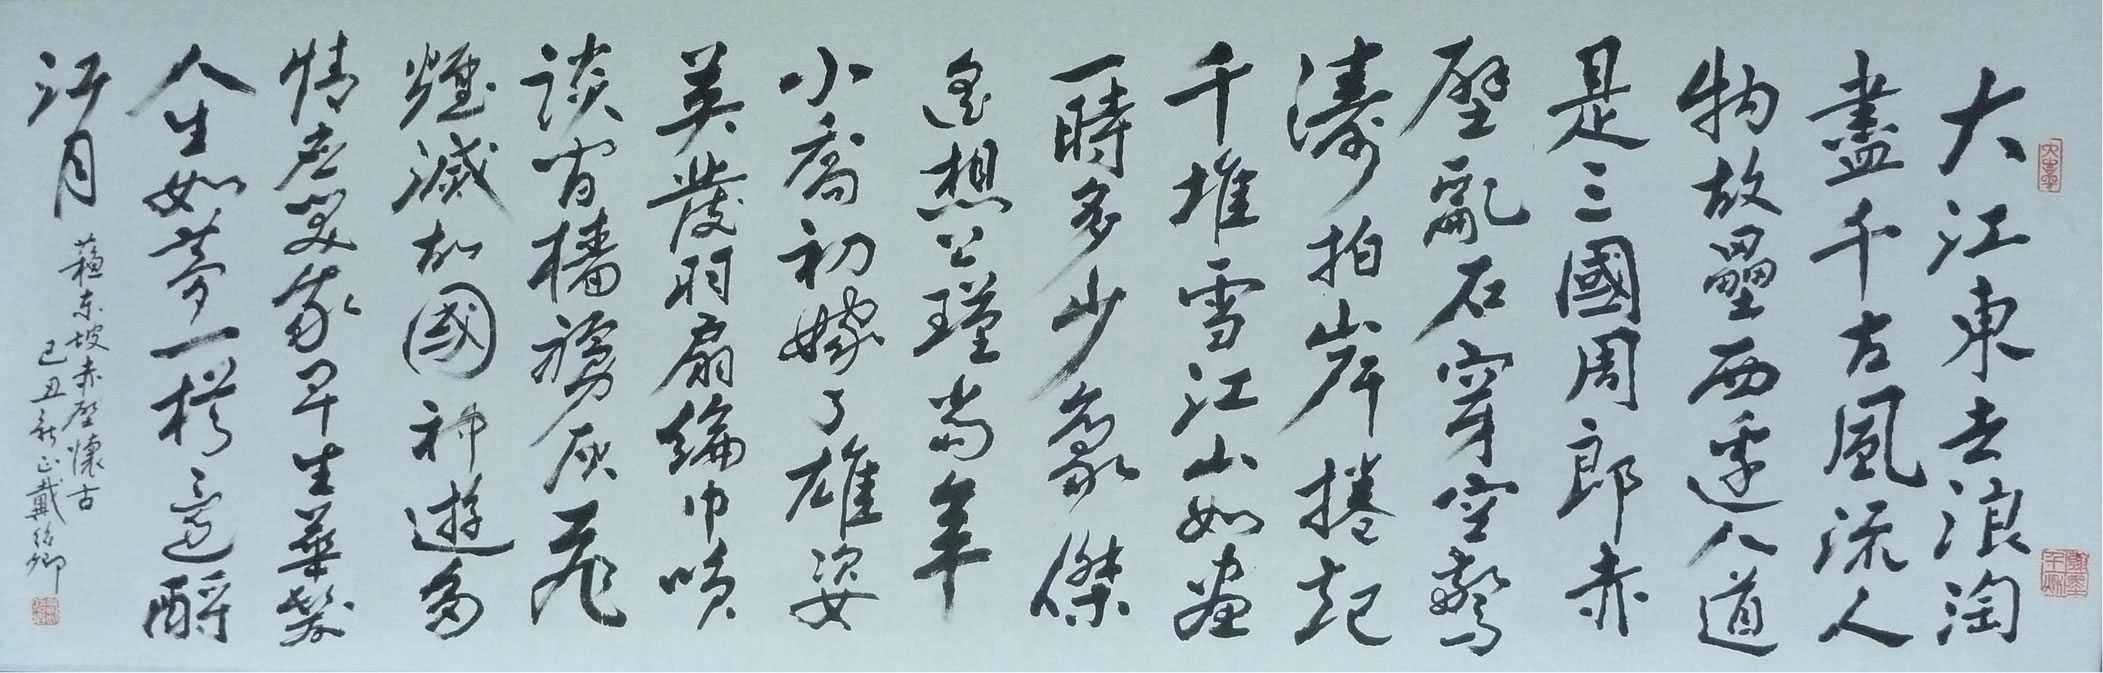 大江東去浪淘
盡千古風流人
物故壘西邊人道
是三國周郎赤
壁亂石穿空驚
濤拍岸捲起
千堆雪江山如畫
一時多少豪傑
遙想公瑾當年
小喬初嫁了雄姿
英發羽扇綸巾笑
談間檣艣灰飛
煙滅故國神遊多
情應笑我早生華髮
人生如夢一樽還酹
江月
蘇東坡赤壁懷古
己丑新正戴紹卿